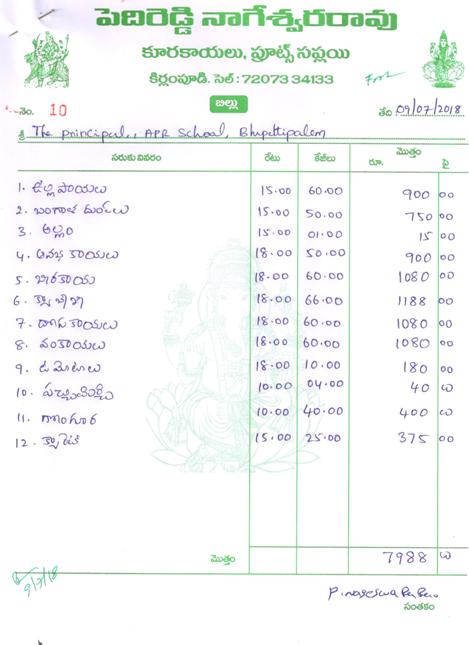 పెదిరెడ్డి నాగేశ్వరరావు
కూరకాయలు, ఫ్రూట్స్ సప్లయి
కిర్లంపూడి. సెల్ : 72073 34133
నెం. 10 బిల్లు తేది 09/07/2018
శ్రీ The principal., APR School, Bhupattipalem
సరుకు వివరం రేటు కేజీలు మొత్తం రూ. పై
1. ఉల్లిపాయలు 15.00 60.00 900 00
2. బంగాళ దుంపలు 15.00 50.00 750 00
3. అల్లం 15.00 01.00 15 00
4. ఆనభ కాయలు 18.00 50.00 900 00
5. బీరకాయ 18.00 60.00 1080 00
6. క్యాబేజీ 18.00 66.00 1188 00
7. దొండకాయలు 18.00 60.00 1080 00
8. వంకాయలు 18.00 60.00 1080 00
9. టమోటాలు 18.00 10.00 180 00
10. పచ్చిమిర్చి 10.00 04.00 40 00
11. గోంగూర 10.00 40.00 400 00
12. క్యారెట్ 15.00 25.00 375 00
మొత్తం 7988 00
9/7/18
సంతకం